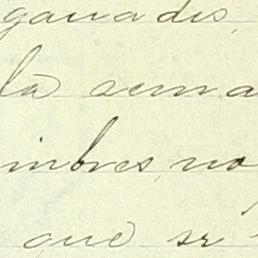 ganadis,
la sema
imbres, no
que sr